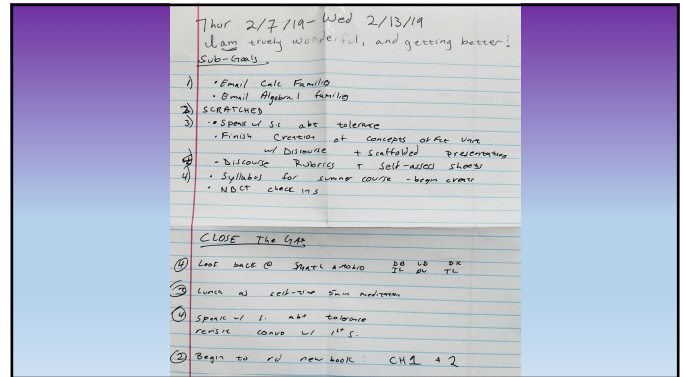 Thur 2/7/19 - Wed 2/13/19
I am truely wonderful, and getting better!
Sub-Goals
1) • Email Calc Families
• Email Algebra 1 families
2) SCRATCHED
3) • Speak w/ S.s abt tolerance
• Finish Creation of concepts of Fct Unit
w/ Discourse + Scaffolded presentation
- Discourse Rubrics + self-assess sheets
4) • Syllabos for summer course - begin create
• NBCT check ins
CLOSE The GAP
4 Look back @ Math autobio DB LD DK
IL DV TL
3 Lunch as self-time 5min meditation
1 speak w/ s. abt tolerance
convo w/ 1st s.
2 Begin to rd new book: CH1 + 2